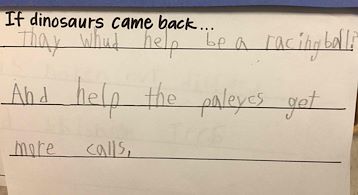 If dinosaurs came back...
Thay whud help be a racingball!
And help the paleycs get
more calls,